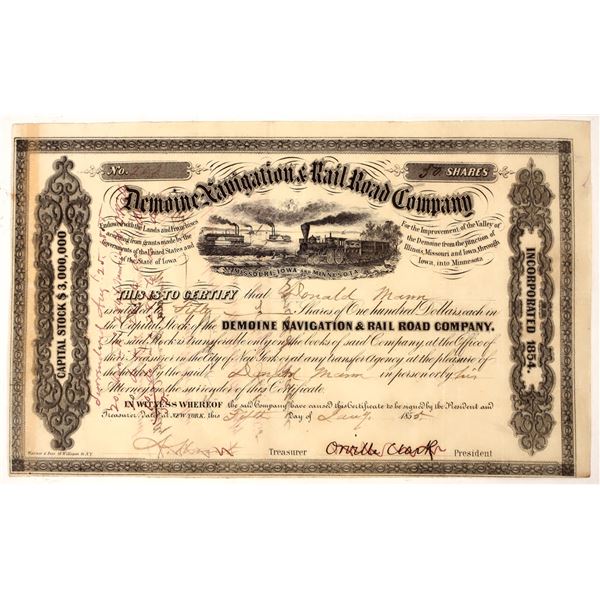 No.
50 SHARES
Demoine Navigation & Rail Road Company
Endowed with the Lands and Franchises
acquired from grants made by the
Governments of the United States and
of the State of Iowa
For the Improvement of the Valley of
the Demoine from the junction of
Illinois, Missouri and Iowa, through
Iowa, into Minnesota
MISSOURI, IOWA AND MINNESOTA
CAPITAL STOCK $3,000,000
INCORPORATED 1854.
THIS IS TO CERTIFY that Donald Mann
is entitled to Fifty Shares of One hundred Dollars each in
the Capital Stock of the DEMOINE NAVIGATION & RAIL ROAD COMPANY.
The said Stock is transferable only on the books of said Company at the Office of
their Treasurer in the City of New York or at any transfer Agency at the pleasure of
the holder by the said Donald Mann in person or by his
Attorney on the surrender of this Certificate.
IN WITNESS WHEREOF the said Company have caused this Certificate to be signed by the President and
Treasurer, Dated at NEW-YORK, this Fifth Day of 1855
Treasurer Orville Clark President